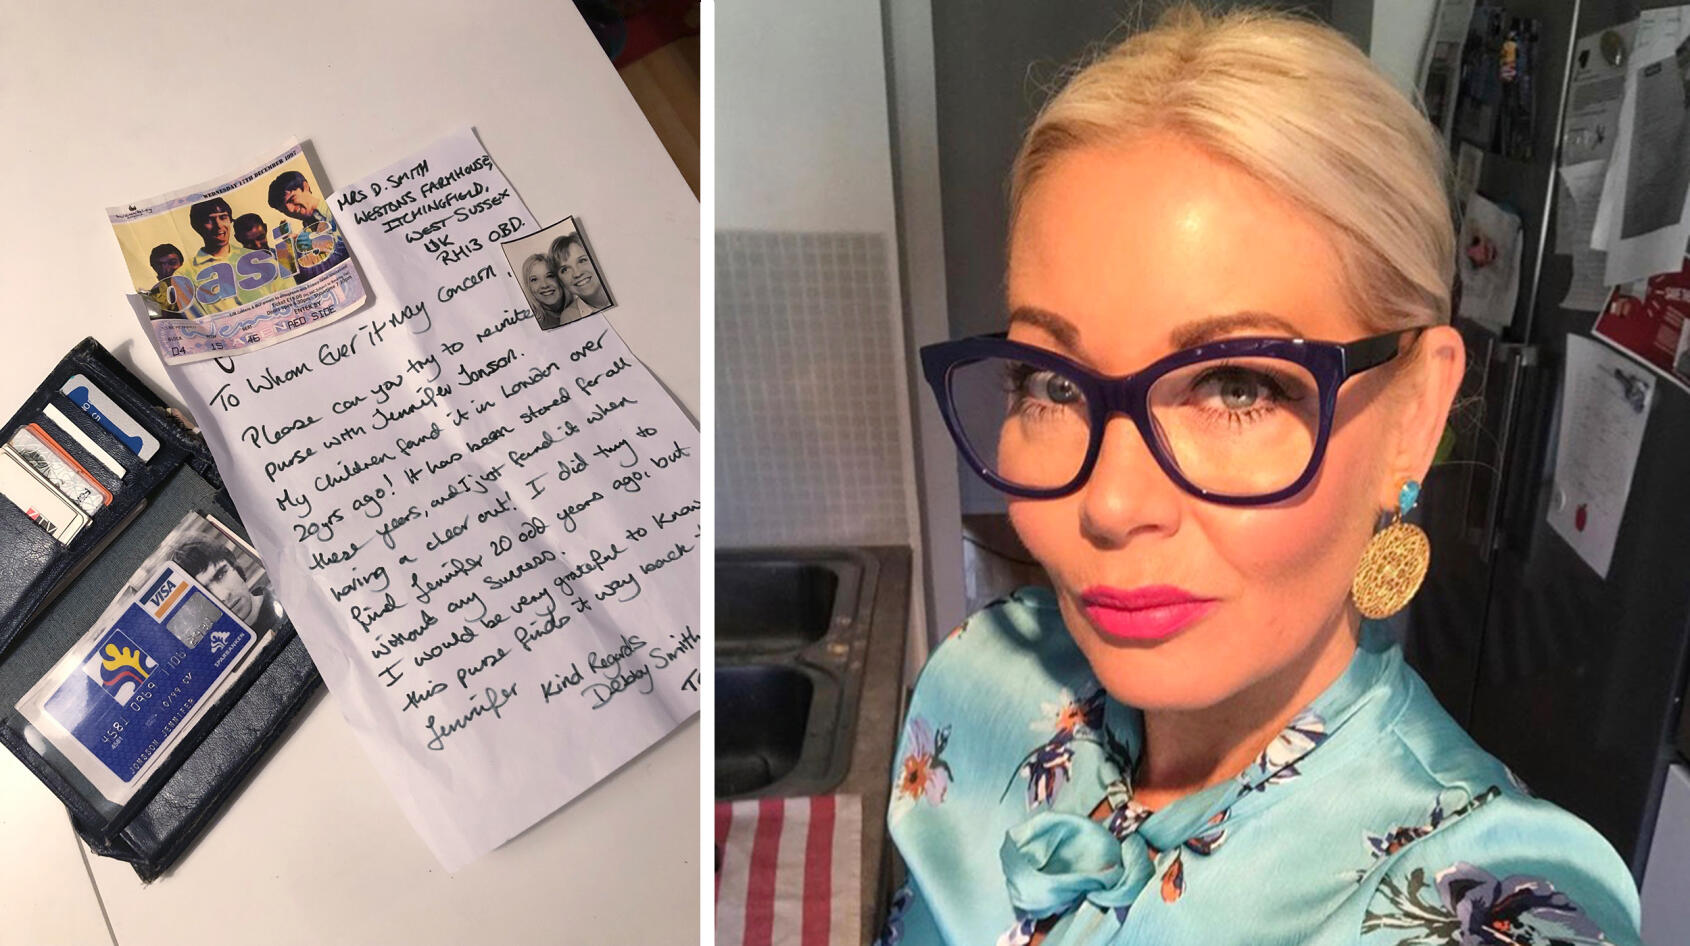 WEDNESDAY 17TH DECEMBER 1997
oasis
Wembley
ENTER BY
RED SIDE
04 15 46
MRS D. SMITH
WESTONS FARMHOUSE,
ITCHINGFIELD,
WEST SUSSEX
UK
RH13 0BD.
To Whom Ever it May Concern,
Please can you try to reunite
purse with Jennifer Jonson.
My children found it in London over
20yrs ago! It has been stored for all
these years, and I just found it when
having a clear out! I did try to
find Jennifer 20 odd years ago, but
without any success.
I would be very grateful to know
this purse finds it way back
Jennifer Kind Regards
Debby Smith
VISA
SPARBANKEN
4581 0969 106
4581
0/99 CV
JONSSON JENNIFER